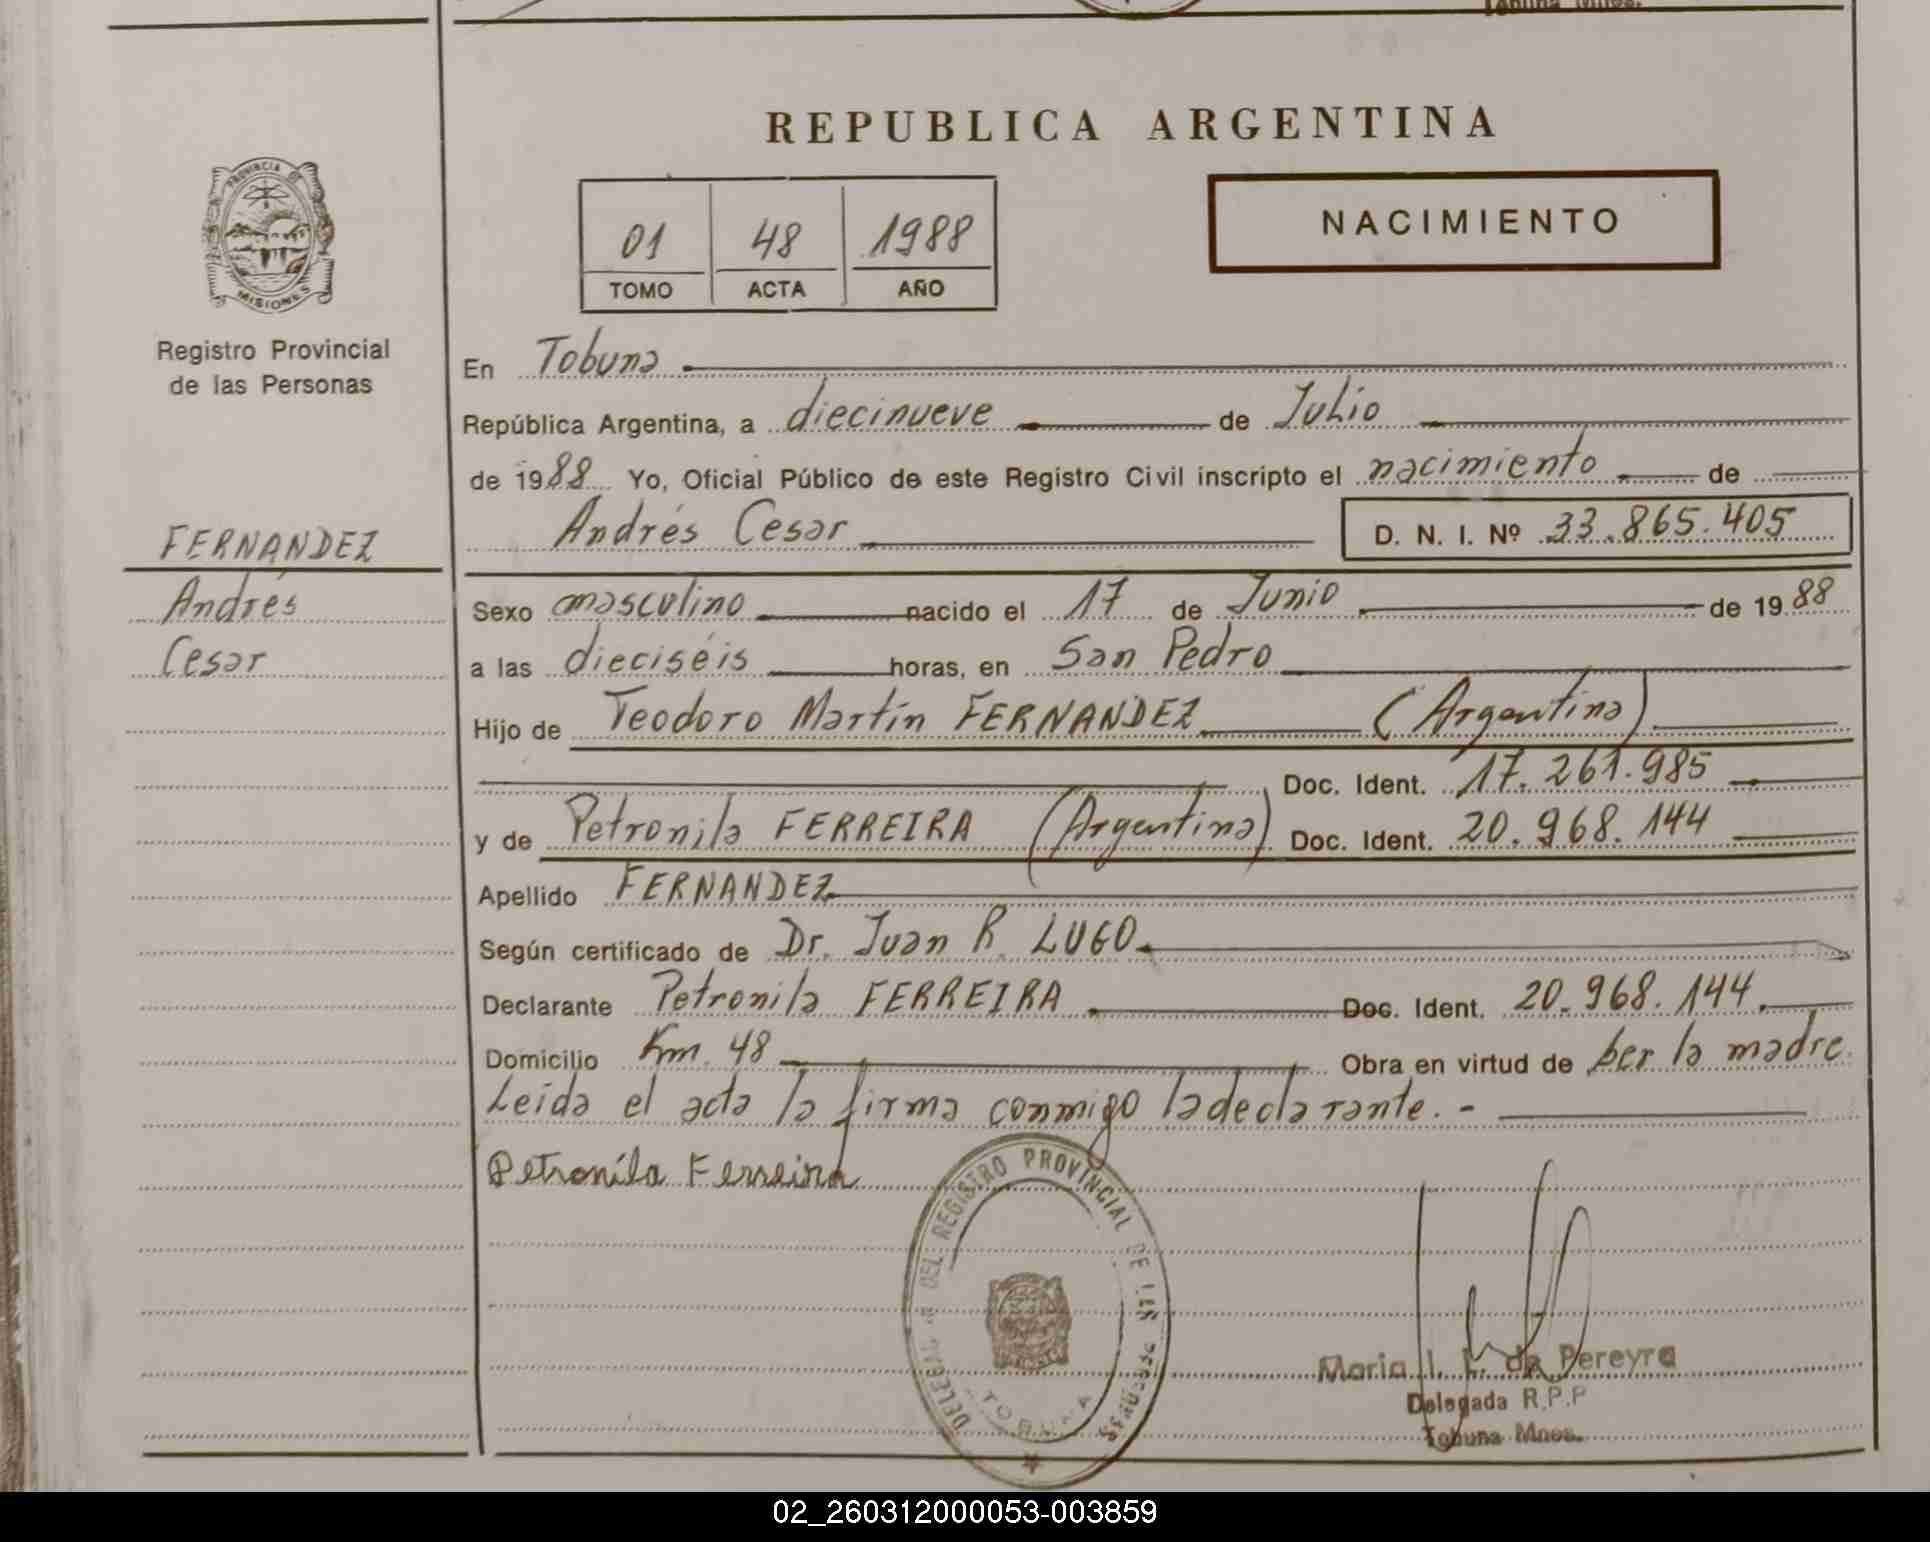 Tobuna Mnes.
REPUBLICA ARGENTINA
NACIMIENTO
01 48 1988
TOMO ACTA AÑO
PROVINCIA DE
MISIONES
Registro Provincial
de las Personas
FERNANDEZ
Andrés
Cesar
En Tobuna
República Argentina, a diecinueve de Julio
de 1988 Yo, Oficial Público de este Registro Civil inscripto el nacimiento de
Andrés Cesar D. N. I. Nº 33.865.405
Sexo masculino nacido el 17 de Junio de 1988
a las dieciséis horas, en San Pedro
Hijo de Teodoro Martín FERNANDEZ (Argentina)
Doc. Ident. 17.261.985
y de Petronila FERREIRA (Argentina) Doc. Ident. 20.968.144
Apellido FERNANDEZ
Según certificado de Dr. Juan R. LUGO
Declarante Petronila FERREIRA Doc. Ident. 20.968.144.
Domicilio Km. 48 Obra en virtud de ser la madre.
Leída el acta la firma conmigo la declarante. -
Petronila Ferreira
DELEGAC DEL REGISTRO PROVINCIAL DE LAS PERSONAS
TOBUNA
Maria I. L. de Pereyra
Delegada R.P.P
Tobuna Mnes.
02_260312000053-003859